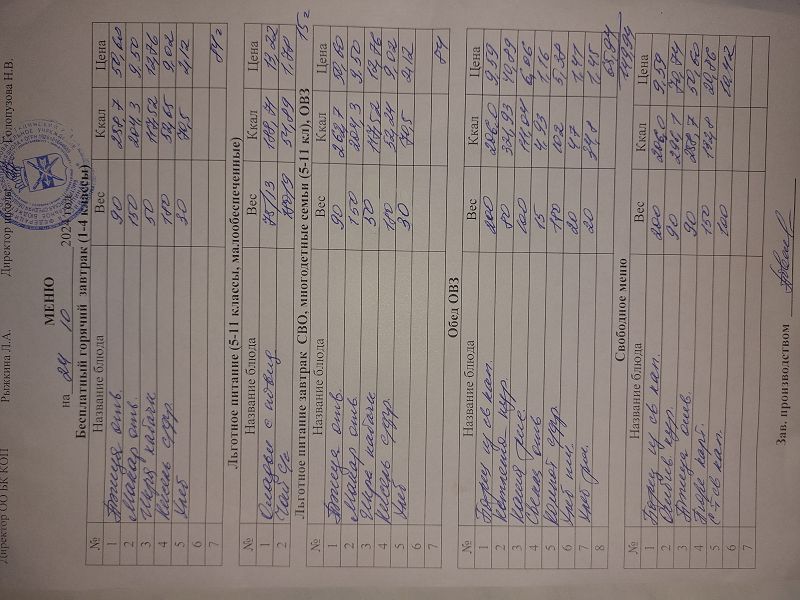 Директор ОО БК КОП Рыжкина Л.А. Директор школы Голопузова Н.В.
МЕНЮ
на 24 10 2024 год
Бесплатный горячий завтрак (1-4 классы)
№ Название блюда Вес Ккал Цена
1 Птица отв. 90 258,7 50,60
2 Макар отв. 150 204,3 9,50
3 Икра кабачк 50 117,52 12,76
4 Кисель сухр. 180 9,02
5 Хлеб 30 70,5 2,12
6
7 84
Льготное питание (5-11 классы, малообеспеченные)
№ Название блюда Вес Ккал Цена
1 Оладьи с повид 75/13 13,22
2 Чай с/с 1,78
15
Льготное питание завтрак СВО, многодетные семьи (5-11 кл), ОВЗ
№ Название блюда Вес Ккал Цена
1 Птица отв. 90 50,60
2 Макар отв. 150 204,3 9,50
3 Икра кабачк 50 117,52 12,76
4 Кисель сухр. 180 9,02
5 Хлеб 30 70,5 2,12
6
7 84
Обед ОВЗ
№ Название блюда Вес Ккал Цена
1 из св кап. 200 206,0 9,59
2 Котлета кур 80 331,93 40,89
3 Каша рис 100 6,06
4 Свекла отв 15 4,93 1,16
5 Компот сухр. 180 102 5,38
6 Хлеб пш. 20 47 1,41
7 Хлеб рж. 20 34,8 1,45
8
Свободное меню
№ Название блюда Вес Ккал Цена
1 из св кап. 200 206,0 9,59
2 кур. 90
3 Птица отв. 90 258,7 50,60
4 Пюре карт. 150 20,86
5 С-т св кап. 100
6
7
Зав. производством